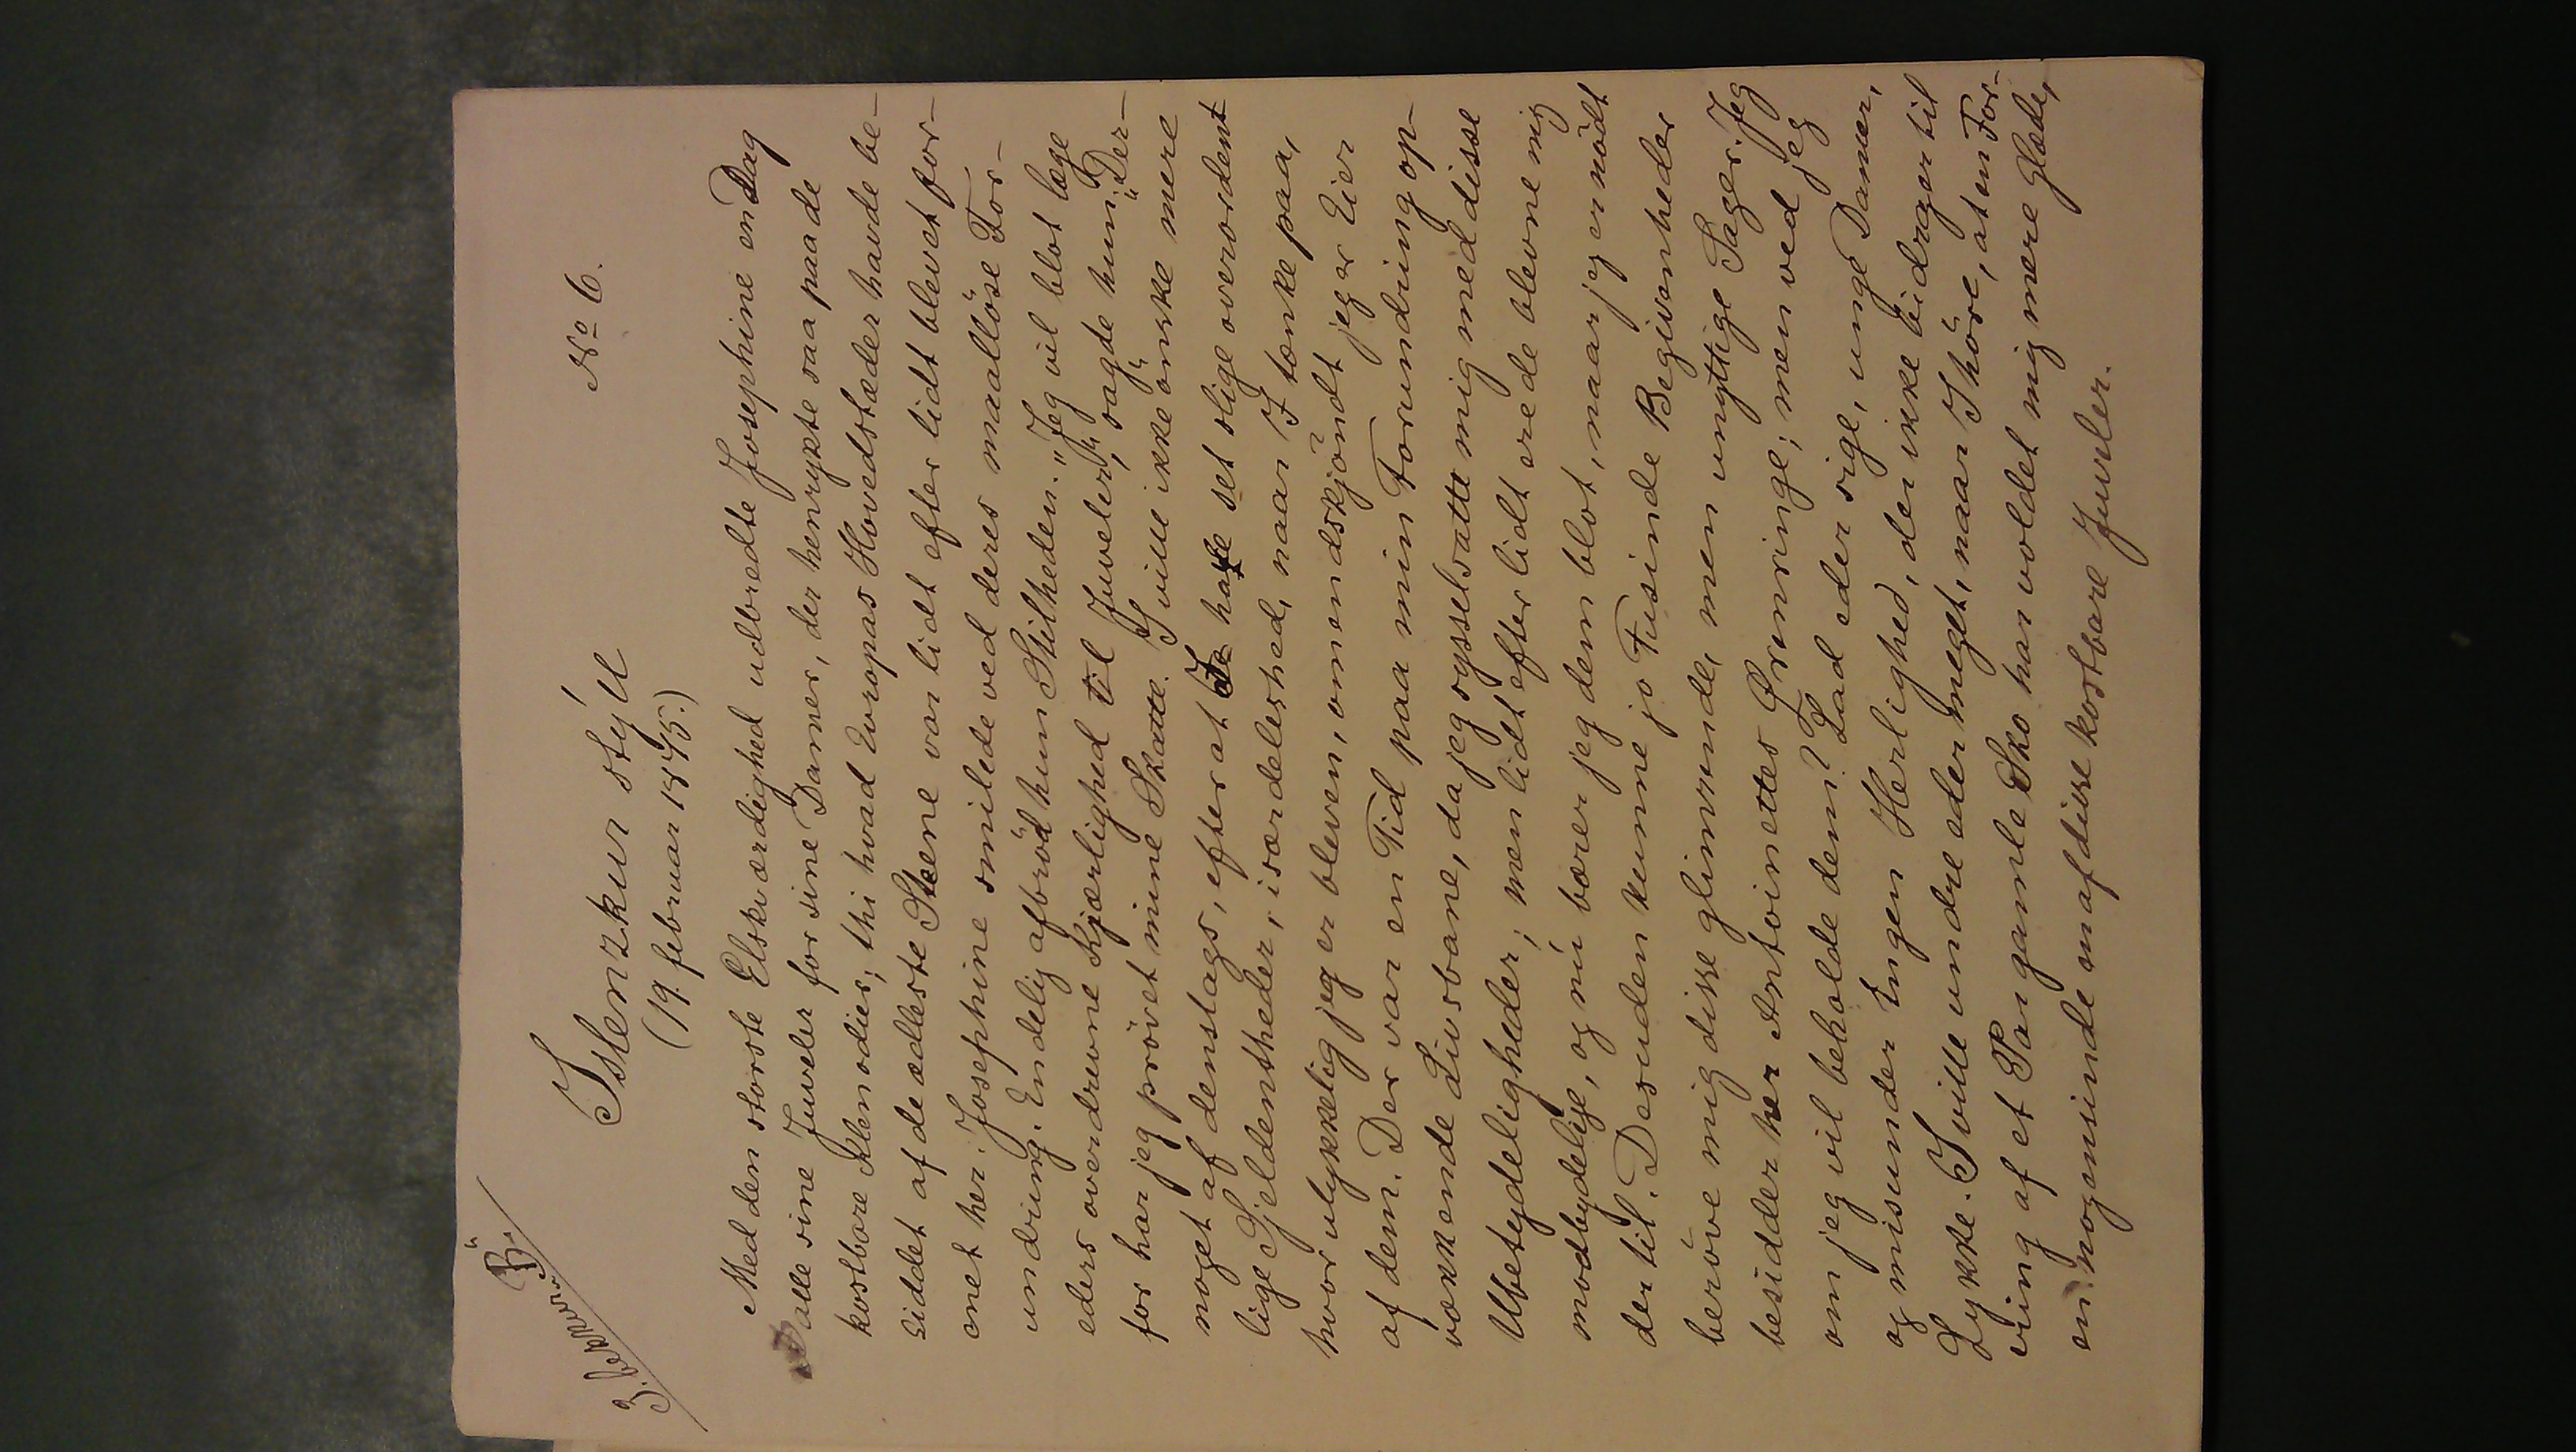 3. bekkur B.
Íslenzkur stýll No 6.
(19. februar 1875.)
Med den storste Elskværdighed udbredte Josephine en Dag
alle sine Juveler for sine Damer, der henrykte saa paa de
kostbare Klenodier; thi hvad Evropas Hovedstæder havde be-
siddet af de ædleste Steene var lidt efter lidt blevet for-
enet her. Josephine smilede ved deres maallöse For-
undring. Endelig afbröd hun Stilheden. „Jeg vil blot læge
eders overdrevne Kjærlighed til Juveler,“ sagde hun; „Der-
for har jeg prövet mine Skatte. I ville ikke önske mere
noget af denslags, efter at I have set slige overordent
lige Sjeldentheder, isærdeleshed, naar I tænke paa,
hvor ulykkelig jeg er bleven, omendskjöndt jeg er Eier
af dem. Der var en Tid paa min Forundring op-
vækkende Livsbane, da jeg sysselsatte mig med disse
Ubetydeligheder; men lidt efter lidt ere de blevne mig
modbydelige, og nú bærer jeg dem blot, naar jeg er nödt
der til. Desuden kunne jo Tusinde Begivenheder
beröve mig disse glimrende, men unyttige Sager. Jeg
besidder her Antoinettes Örenringe; men ved jeg
om jeg vil beholde dem? Lad eder sige, unge Damer,
og misunder Ingen Herlighed, der ikke bidrager til
Lykke. I ville undre eder meget, naar I höre, at en For-
ering af et Par gamle Sko har voldet mig mere Glæde,
en nogensinde en af disse kostbare Juveler.